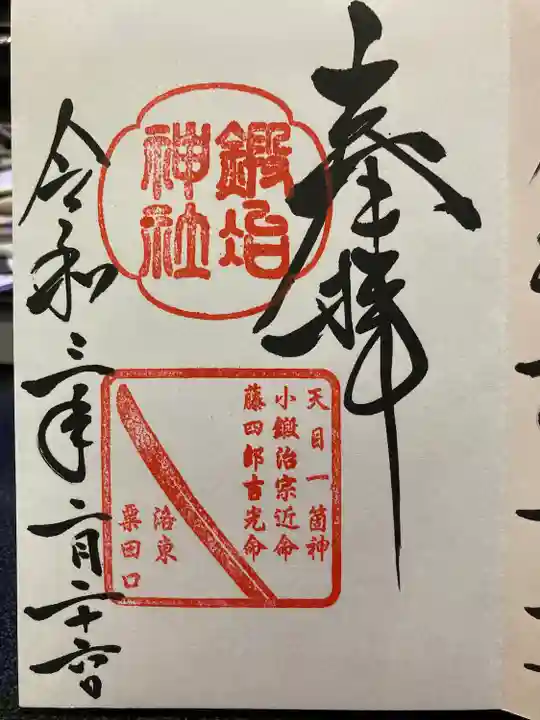 奉拝
鍛冶
神社
天目一箇神
小鍛治宗近命
藤四郎吉光命
洛東
粟田口
令和三年二月二十六日